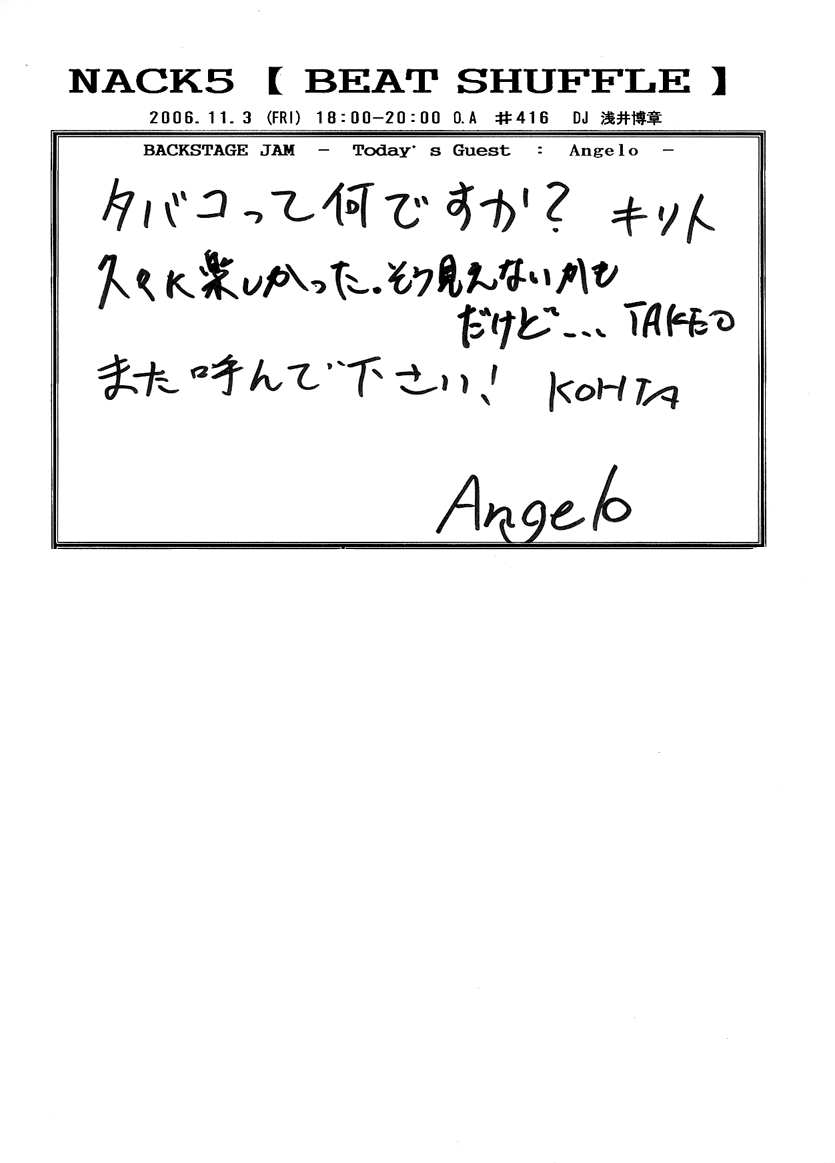 NACK5 【 BEAT SHUFFLE 】
2006.11.3 (FRI) 18:00-20:00 O.A #416 DJ 浅井博章
BACKSTAGE JAM - Today's Guest : Angelo -
タバコって何ですか? キリト
久々に楽しかった。そう見えないかも
だけど... TAKEO
また呼んで下さい! KOHTA
Angelo